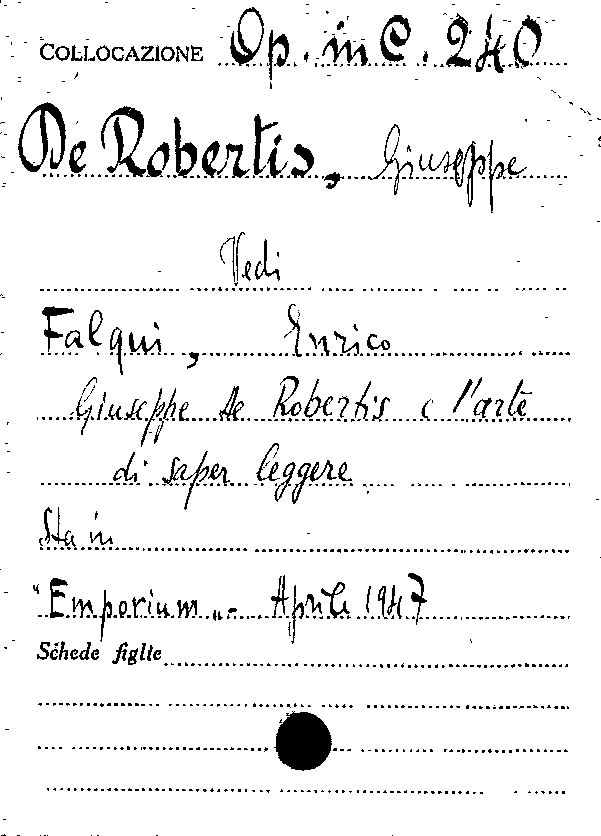 COLLOCAZIONE Op. in C. 240
De Robertis, Giuseppe
Vedi
Falqui, Enrico
Giuseppe De Robertis e l'arte
di saper leggere
Sta in
"Emporium„ - Aprile 1947
Schede figlie